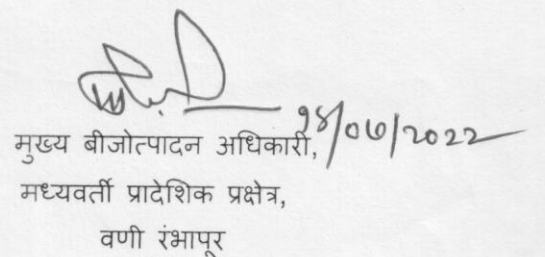 १४/०७/2022
मुख्य बीजोत्पादन अधिकारी,
मध्यवर्ती प्रादेशिक प्रक्षेत्र,
वणी रंभापूर